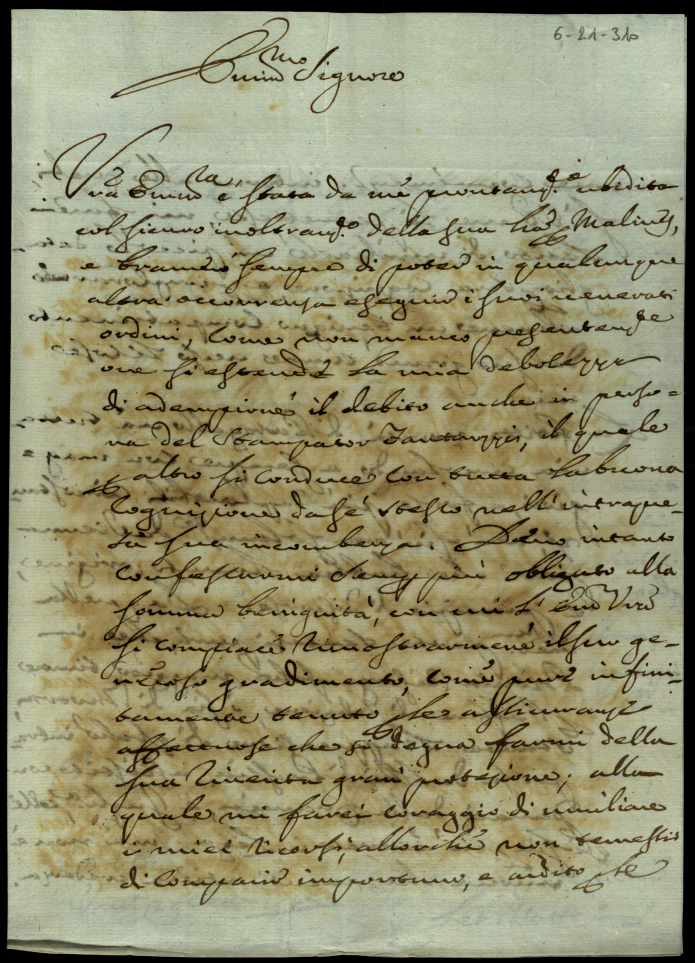 6-21-310
Emin.mo Signore
V.ra Emin.za è stata da me prontam.te ubedita
col sicuro inoltram.to della sua
e bramerò sempre di poter in qualunque
altra occorrenza eseguir i suoi venerati
ordini, come non manco presentem.te
ove si estende la mia debolezza
di adempirne il debito anche in perso=
na del Stampator Fantuzzi, il quale
p altro si conduce con tutta la buona
Cognizione da se stesso nell'intrape=
sa sua incombenza. Devo intanto
confessarmi semp più obligato alla
somma benignità, con cui l'Em.a V.ra
si compiace rimostrarmene il suo ge=
neroso gradimento, come pure infini=
tamente tenuto p le assicuranze
affettuose che si degna farmi della
sua riverita gran protezione; alla
quale mi farei coraggio di umiliare
i miei ricorsi, allorche non temessi
di comparir importuno, e ardito p le